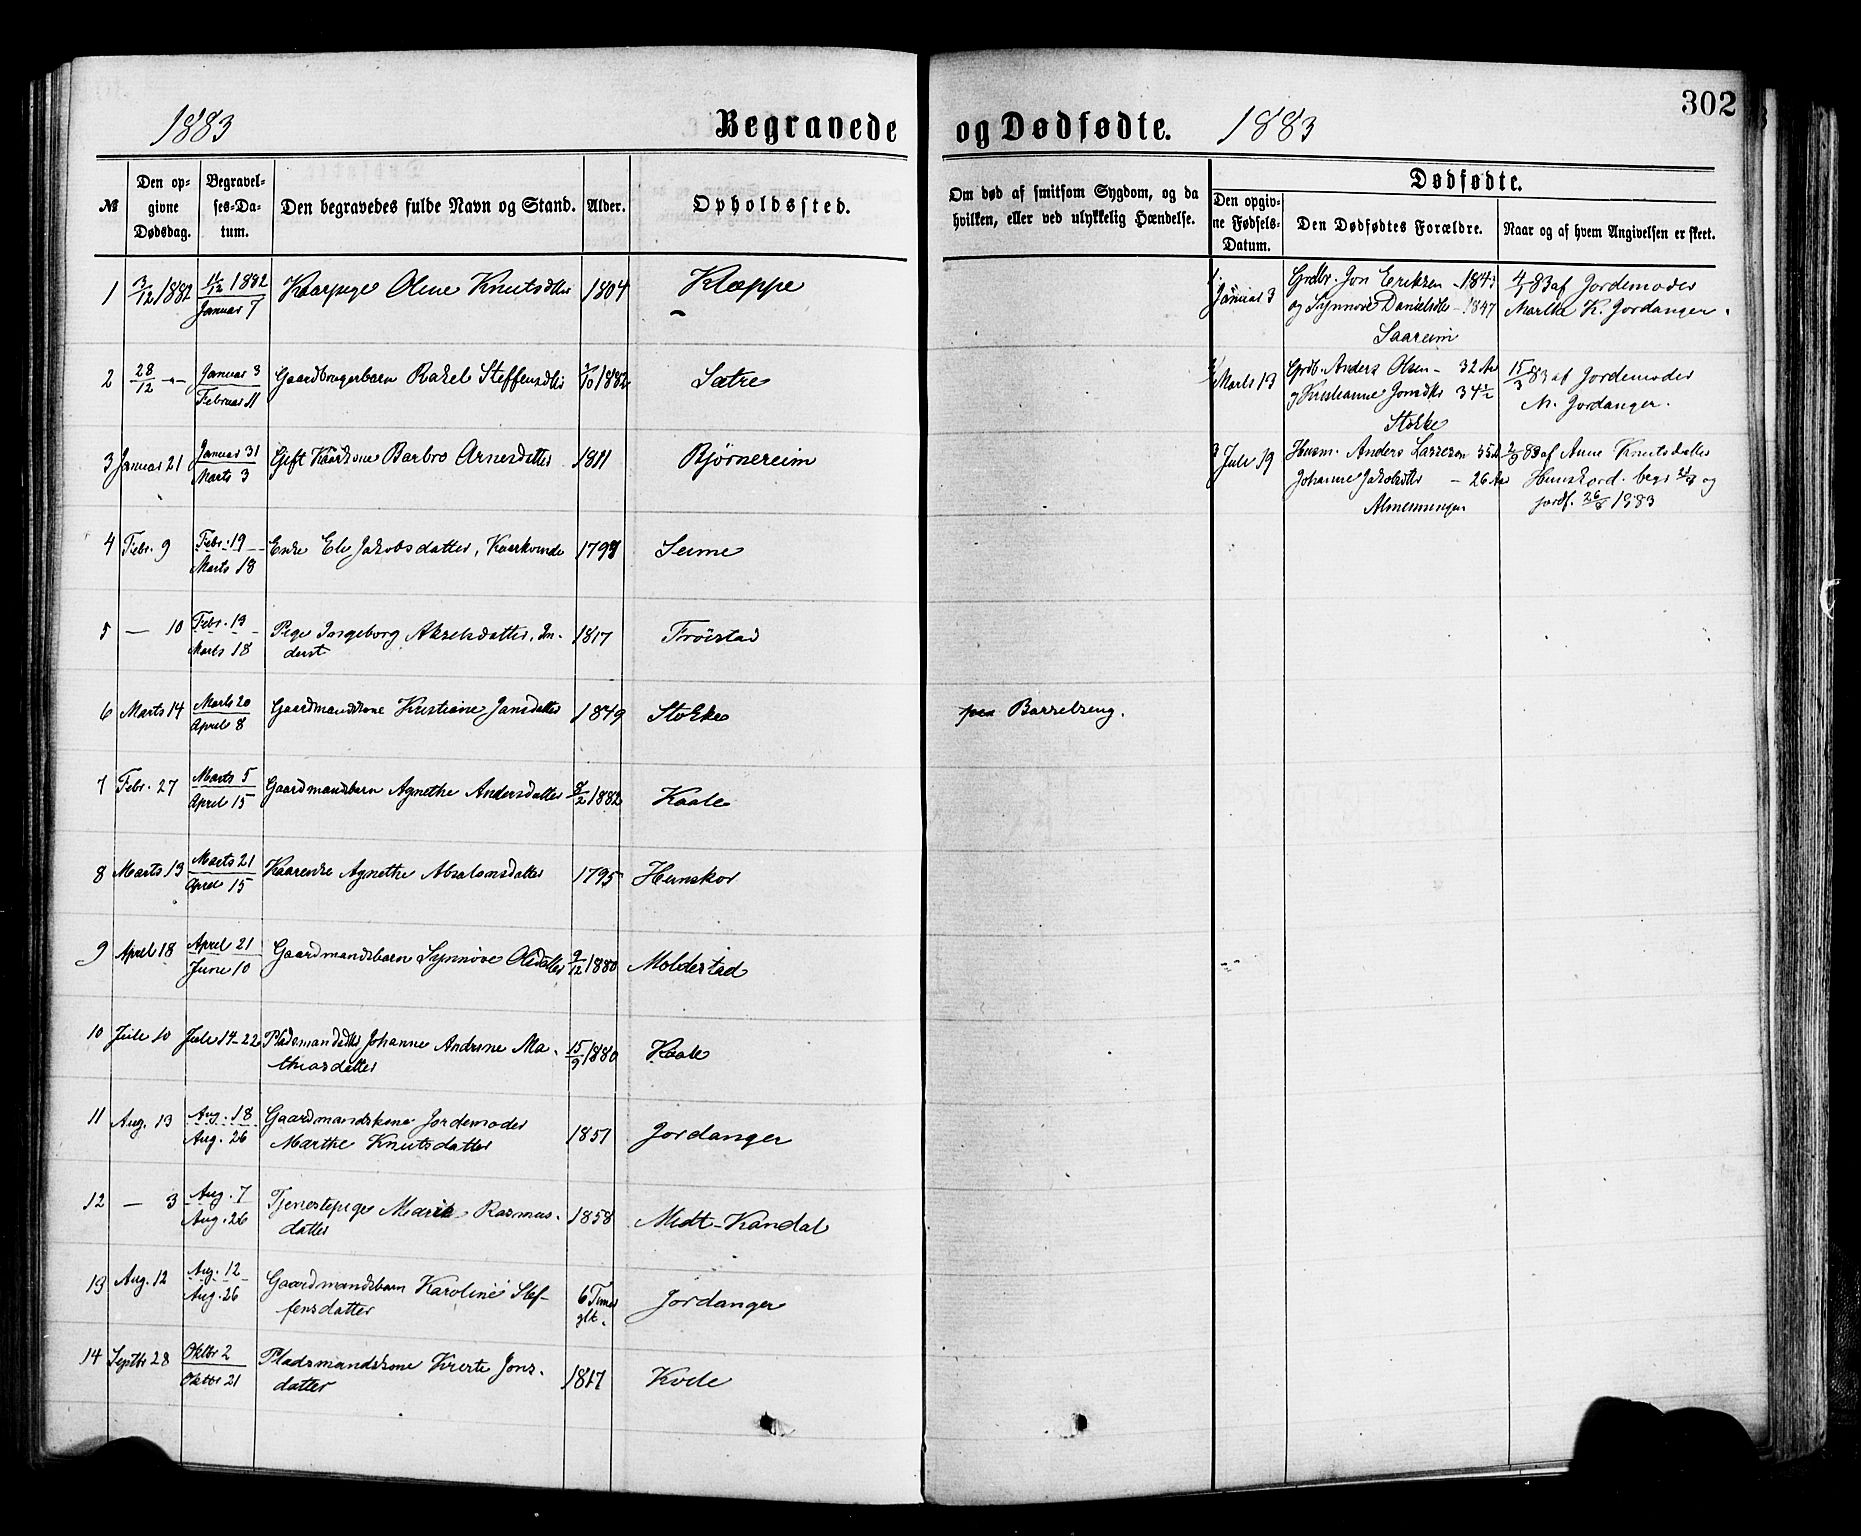 302
1883
Begravede
og Dødfødte.
1883
№
Den op-
givne
Dødsdag.
Begravel-
ses-Da-
tum.
Den begravedes fulde Navn og Stand.
Alder.
Opholdssted.
Om død af smitsom Sygdom, og da
hvilken, eller ved ulykkelig Hændelse.
Dødfødte.
Den opgiv-
ne Fødsels-
Datum.
Den Dødfødtes Forældre.
Naar og af hvem Angivelsen er skeet.
1 3/12 1882 11/12 1882 Kaarpige Oline Knutsdtter 1804 Kleppe
Januar 7
2 28/12 — Januar 3 Gaardbrugerbarn Rakel Steffensdtr 1882 Sætre
Februar 11
3 Januar 21 Januar 31 Gift Kaarkone Barbro Arnesdatter 1811 Bjørnereim
Marts 3
4 Febr. 9 Febr. 19 Enke Eli Jakobsdatter, Kaarkvinde Seime
Marts 18
5 — 10 Febr. 19 Pige Ingeborg Akselsdatter, In- 1817 Frøistad
Marts 18 derst
6 Marts 14 Marts 20 Gaardmandskone Kristiane Jansdatter 1849 Stokke
April 8
7 Febr. 27 Marts 5 Gaardmandsbarn Agnethe Andersdatter 8/2 1882 Kaale
April 15
8 Marts 13 Marts 21 Kaarenke Agnethe Absalonsdatter 1795 Hunskor
April 15
9 April 18 April 21 Gaardmandsbarn Synnøve Olsdatter 9/12 1880 Moldestad
Juni 10
10 Juli 10 Juli 14-22 Pladsmandsdtr Johanne Andrine Ma- 15/9 1880 Kaale
thiasdatter
11 Aug. 13 Aug. 18 Gaardmandskone Jordemoder
Aug. 26 Marthe Knutsdatter 1851 Jordanger
12 — 3 Aug. 7 Tjenestepige Marie Rasmus- 1858 Midt-Kandal
Aug. 26 datter
13 Aug. 12 Aug. 12 Gaardmandsbarn Karoline Stef- 6 Timer Jordanger
Aug. 26 fensdatter glt.
14 Septbr 28 Oktbr 2 Pladsmandskone Kirste Jons- 1817 Kvile
Oktbr 21 datter
paa Barselseng.
1. Januar 3 Grdbr. Jon Eriksen - 1843 4/1 83 af Jordemoder
og Synnove Danielsdtr - 1847 Marthe K. Jordanger.
Saareim
2 Marts 13 Grdb. Anders Olsen - 32 Aar 15/3 83 af Jordemoder
og Kristianne Jonsdtr 34 1/2 M. Jordanger.
Stokke
3 Juli 19 Husm. Anders Lassesen 35 A 2/9 83 af Anne Knutsdatter
Johanne Jakobsdtr - 26 Aar Hunskord. begr. og
Almenningen jordf. 26/8 1883